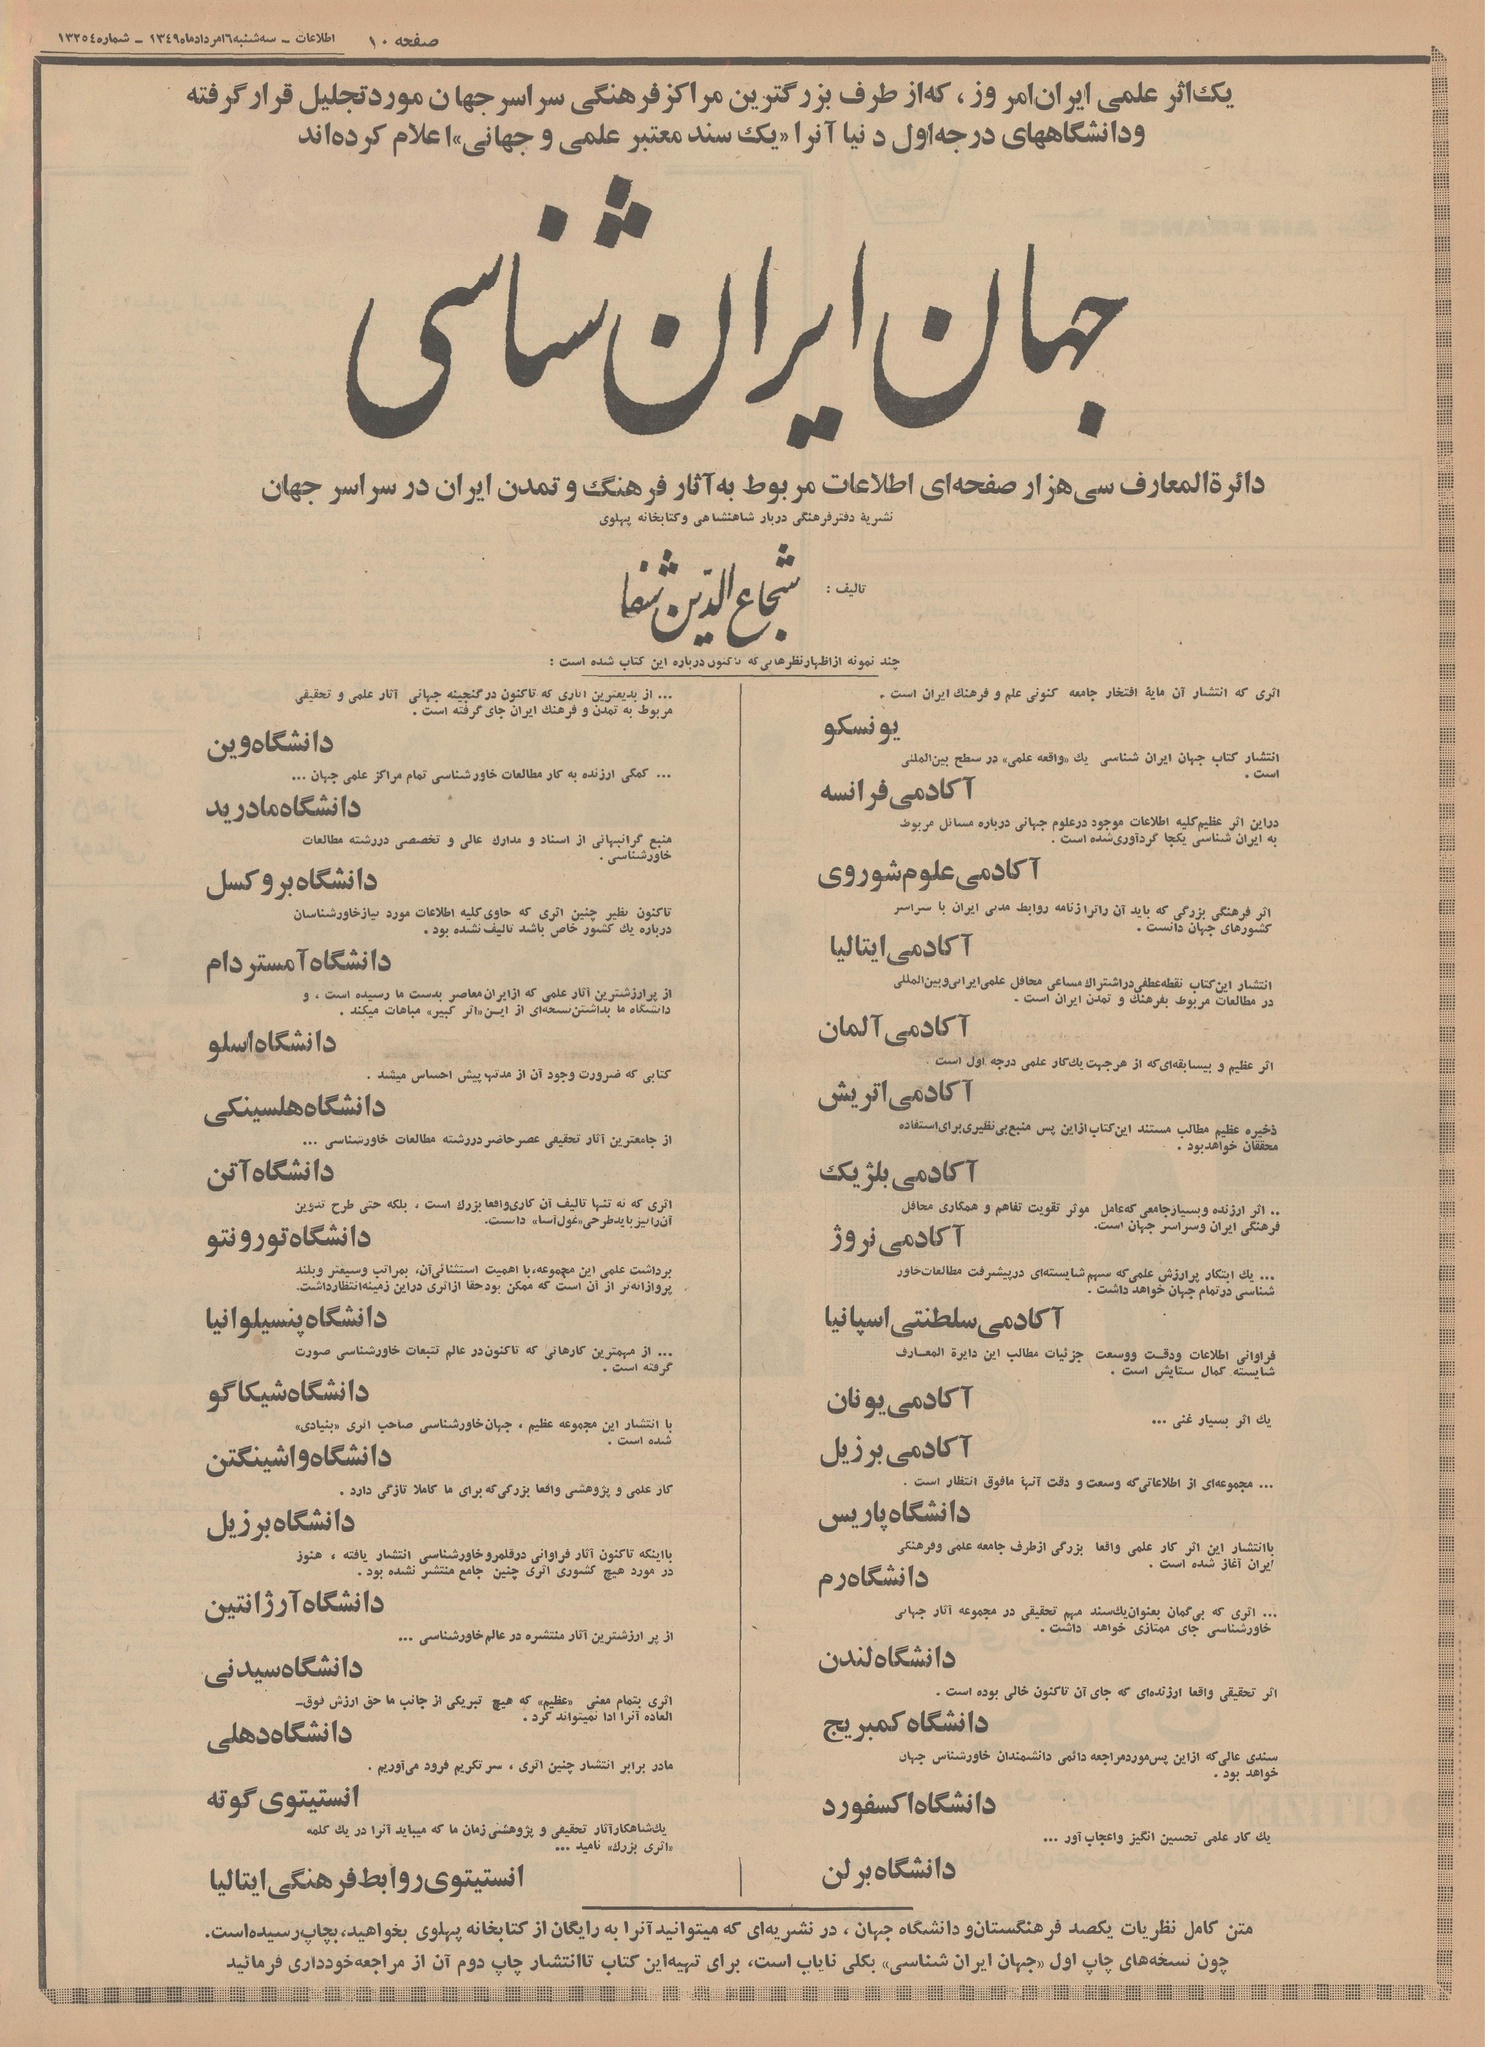 صفحه ۱۰
اطلاعات ــ سه‌شنبه ۶ مرداد ماه ۱۳۴۹ ــ شماره ۱۳۲۵۴
یک اثر علمی ایران امروز، که از طرف بزرگترین مراکز فرهنگی سراسر جهان مورد تجلیل قرار گرفته
و دانشگاههای درجه اول دنیا آنرا «یک سند معتبر علمی و جهانی» اعلام کرده‌اند
جهان ایران شناسی
دائرةالمعارف سی هزار صفحه‌ای اطلاعات مربوط به آثار فرهنگ و تمدن ایران در سراسر جهان
نشریهٔ دفتر فرهنگی دربار شاهنشاهی و کتابخانه پهلوی
تالیف :
شجاع الدین شفا
چند نمونه از اظهار نظرهائی که تاکنون درباره این کتاب شده است :
اثری که انتشار آن مایهٔ افتخار جامعه کنونی علم و فرهنگ ایران است .
یونسکو
انتشار کتاب جهان ایران شناسی یک «واقعه علمی» در سطح بین‌المللی
است .
آکادمی فرانسه
در این اثر عظیم کلیه اطلاعات موجود در علوم جهانی درباره مسائل مربوط
به ایران شناسی یکجا گردآوری شده است .
آکادمی علوم شوروی
اثر فرهنگی بزرگی که باید آن را ترازنامه روابط مدنی ایران با سراسر
کشورهای جهان دانست .
آکادمی ایتالیا
انتشار این کتاب نقطه عطفی در اشتراک مساعی محافل علمی ایرانی و بین‌المللی
در مطالعات مربوط بفرهنگ و تمدن ایران است .
آکادمی آلمان
اثر عظیم و بیسابقه‌ای که از هر جهت یک کار علمی درجه اول است .
آکادمی اتریش
ذخیره عظیم مطالب مستند این کتاب از این پس منبع بی‌نظیری برای استفاده
محققان خواهد بود .
آکادمی بلژیک
.. اثر ارزنده و بسیار جامعی که عامل موثر تقویت تفاهم و همکاری محافل
فرهنگی ایران و سراسر جهان است.
آکادمی نروژ
... یک ابتکار پرارزش علمی که سهم شایسته‌ای در پیشرفت مطالعات خاور
شناسی در تمام جهان خواهد داشت .
آکادمی سلطنتی اسپانیا
فراوانی اطلاعات و دقت و وسعت جزئیات مطالب این دایرة المعارف
شایسته کمال ستایش است .
آکادمی یونان
یک اثر بسیار غنی ...
آکادمی برزیل
... مجموعه‌ای از اطلاعاتی که وسعت و دقت آنها مافوق انتظار است .
دانشگاه پاریس
با انتشار این اثر کار علمی واقعا بزرگی از طرف جامعه علمی و فرهنگی
ایران آغاز شده است .
دانشگاه رم
... اثری که بی‌گمان بعنوان یک سند مهم تحقیقی در مجموعه آثار جهانی
خاورشناسی جای ممتازی خواهد داشت .
دانشگاه لندن
اثر تحقیقی واقعا ارزنده‌ای که جای آن تاکنون خالی بوده است .
دانشگاه کمبریج
سندی عالی که از این پس مورد مراجعه دائمی دانشمندان خاورشناس جهان
خواهد بود .
دانشگاه اکسفورد
یک کار علمی تحسین انگیز و اعجاب آور ...
دانشگاه برلن
... از بدیعترین آثاری که تاکنون در گنجینه جهانی آثار علمی و تحقیقی
مربوط به تمدن و فرهنگ ایران جای گرفته است .
دانشگاه وین
... کمکی ارزنده به کار مطالعات خاورشناسی تمام مراکز علمی جهان ...
دانشگاه مادرید
منبع گرانبهائی از اسناد و مدارک عالی و تخصصی در رشته مطالعات
خاورشناسی .
دانشگاه بروکسل
تاکنون نظیر چنین اثری که حاوی کلیه اطلاعات مورد نیاز خاورشناسان
درباره یک کشور خاص باشد تالیف نشده بود .
دانشگاه آمستردام
از پرارزشترین آثار علمی که از ایران معاصر بدست ما رسیده است ، و
دانشگاه ما بداشتن نسخه‌ای از این «اثر کبیر» مباهات میکند .
دانشگاه اسلو
کتابی که ضرورت وجود آن از مدتها پیش احساس میشد .
دانشگاه هلسینکی
از جامعترین آثار تحقیقی عصر حاضر در رشته مطالعات خاورشناسی ...
دانشگاه آتن
اثری که نه تنها تالیف آن کاری واقعا بزرگ است ، بلکه حتی طرح تدوین
آن را نیز باید طرحی «غول‌آسا» دانست.
دانشگاه تورونتو
برداشت علمی این مجموعه، با اهمیت استثنائی آن، بمراتب وسیعتر و بلند
پروازانه‌تر از آن است که ممکن بود حقا از اثری در این زمینه انتظار داشت.
دانشگاه پنسیلوانیا
... از مهمترین کارهائی که تاکنون در عالم تتبعات خاورشناسی صورت
گرفته است .
دانشگاه شیکاگو
با انتشار این مجموعه عظیم ، جهان خاورشناسی صاحب اثری «بنیادی»
شده است .
دانشگاه واشینگتن
کار علمی و پژوهشی واقعا بزرگی که برای ما کاملا تازگی دارد .
دانشگاه برزیل
با اینکه تاکنون آثار فراوانی در قلمرو خاورشناسی انتشار یافته ، هنوز
در مورد هیچ کشوری اثری چنین جامع منتشر نشده بود .
دانشگاه آرژانتین
از پر ارزشترین آثار منتشره در عالم خاورشناسی ...
دانشگاه سیدنی
اثری بتمام معنی «عظیم» که هیچ تبریکی از جانب ما حق ارزش فوق‌ــ
العاده آنرا ادا نمیتواند کرد .
دانشگاه دهلی
ما در برابر انتشار چنین اثری ، سر تکریم فرود می‌آوریم .
انستیتوی گوته
یک شاهکار آثار تحقیقی و پژوهشی زمان ما که میباید آنرا در یک کلمه
«اثری بزرگ» نامید ...
انستیتوی روابط فرهنگی ایتالیا
متن کامل نظریات یکصد فرهنگستان و دانشگاه جهان ، در نشریه‌ای که میتوانید آنرا به رایگان از کتابخانه پهلوی بخواهید، بچاپ رسیده است.
چون نسخه‌های چاپ اول «جهان ایران شناسی» بکلی نایاب است، برای تهیه این کتاب تا انتشار چاپ دوم آن از مراجعه خودداری فرمائید